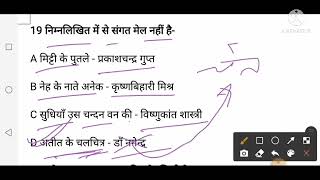 19 निम्नलिखित में से संगत मेल नहीं है-
A मिट्टी के पुतले - प्रकाशचन्द्र गुप्त
B नेह के नाते अनेक - कृष्णबिहारी मिश्र
C सुधियाँ उस चन्दन वन की - विष्णुकांत शास्त्री
D अतीत के चलचित्र - डॉ नगेन्द्र